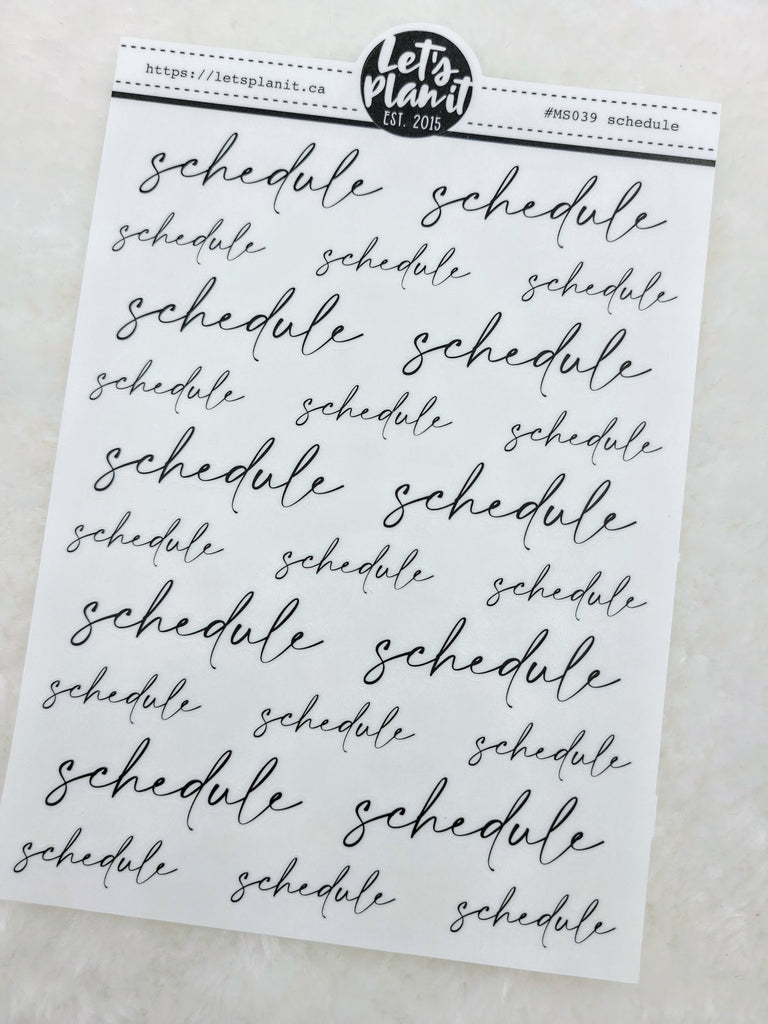 https://letsplanit.ca
Let's
plan it
EST. 2015
#MS039 schedule
schedule schedule
schedule schedule schedule
schedule schedule
schedule schedule schedule
schedule schedule
schedule schedule schedule
schedule schedule
schedule schedule schedule
schedule schedule
schedule schedule schedule